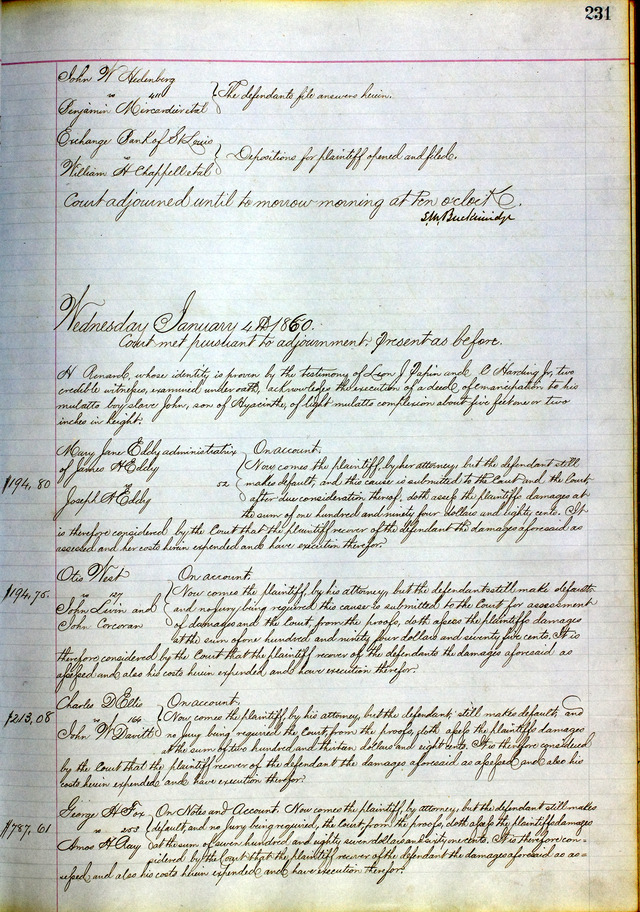 231
John W Hedenberg
vs 411
Benjamin
et al
The defendants file answers herein.
Exchange Bank of St Louis
vs
William H Chappell et al
Depositions for plaintiff opened and filed.
Court adjourned until tomorrow morning at Ten o'clock.
Wednesday January 4th 1860.
Court met pursuant to adjournment: Present as before.
H Renard, whose identity is proven by the testimony of Leon J Papin and C Harding Jr, two
credible witnesses, examined under oath, acknowledges the execution of a deed of emancipation to his
mulatto boy slave John, son of Hyacinthe, of light mulatto complexion about five feet one or two
inches in height:
Mary Jane Eddy administratrix
of James H Eddy
vs 52
Joseph H Eddy
$194,80
On account.
Now comes the plaintiff, by her attorney, but the defendant still
makes default, and this cause is submitted to the Court and the Court
after due consideration thereof, doth assess the plaintiffs damages at
the sum of one hundred and ninety four dollars and eighty cents. It
is therefore considered by the Court that the plaintiff recover of the defendant the damages aforesaid as
assessed and her costs herein expended and have execution therefor.
Otis West
vs 127
John and
John Corcoran
$194,75.
On account.
Now comes the plaintiff, by his attorney, but the defendants still make default
and no jury being required this cause is submitted to the Court for assessment
of damages and the Court, from the proofs, doth assess the plaintiffs damages
at the sum of one hundred and ninety four dollars and seventy five cents. It is
therefore considered by the Court that the plaintiff recover of the defendants the damages aforesaid as
assessed and also his costs herein expended, and have execution therefor.
Charles D Ellis
vs 164
John W
$213,08
On account.
Now comes the plaintiff, by his attorney, but the defendant, still makes default, and
no jury being required the Court, from the proofs, doth assess the plaintiffs damages
at the sum of two hundred and thirteen dollars and eight cents. It is therefore considered
by the Court that the plaintiff recover of the defendant the damages aforesaid as assessed and also his
costs herein expended and have execution therefor
George H Fox
vs 253
Amos H Ray
$787,61
On Notes and Account. Now comes the plaintiff, by attorney, but the defendant still makes
default, and no jury being required, the Court, from the proofs, doth assess the plaintiffs damages
at the sum of seven hundred and eighty seven dollars and sixty one cents. It is therefore con-
sidered by the Court that the plaintiff recover of the defendant the damages aforesaid as as-
sessed and also his costs herein expended and have execution therefor.